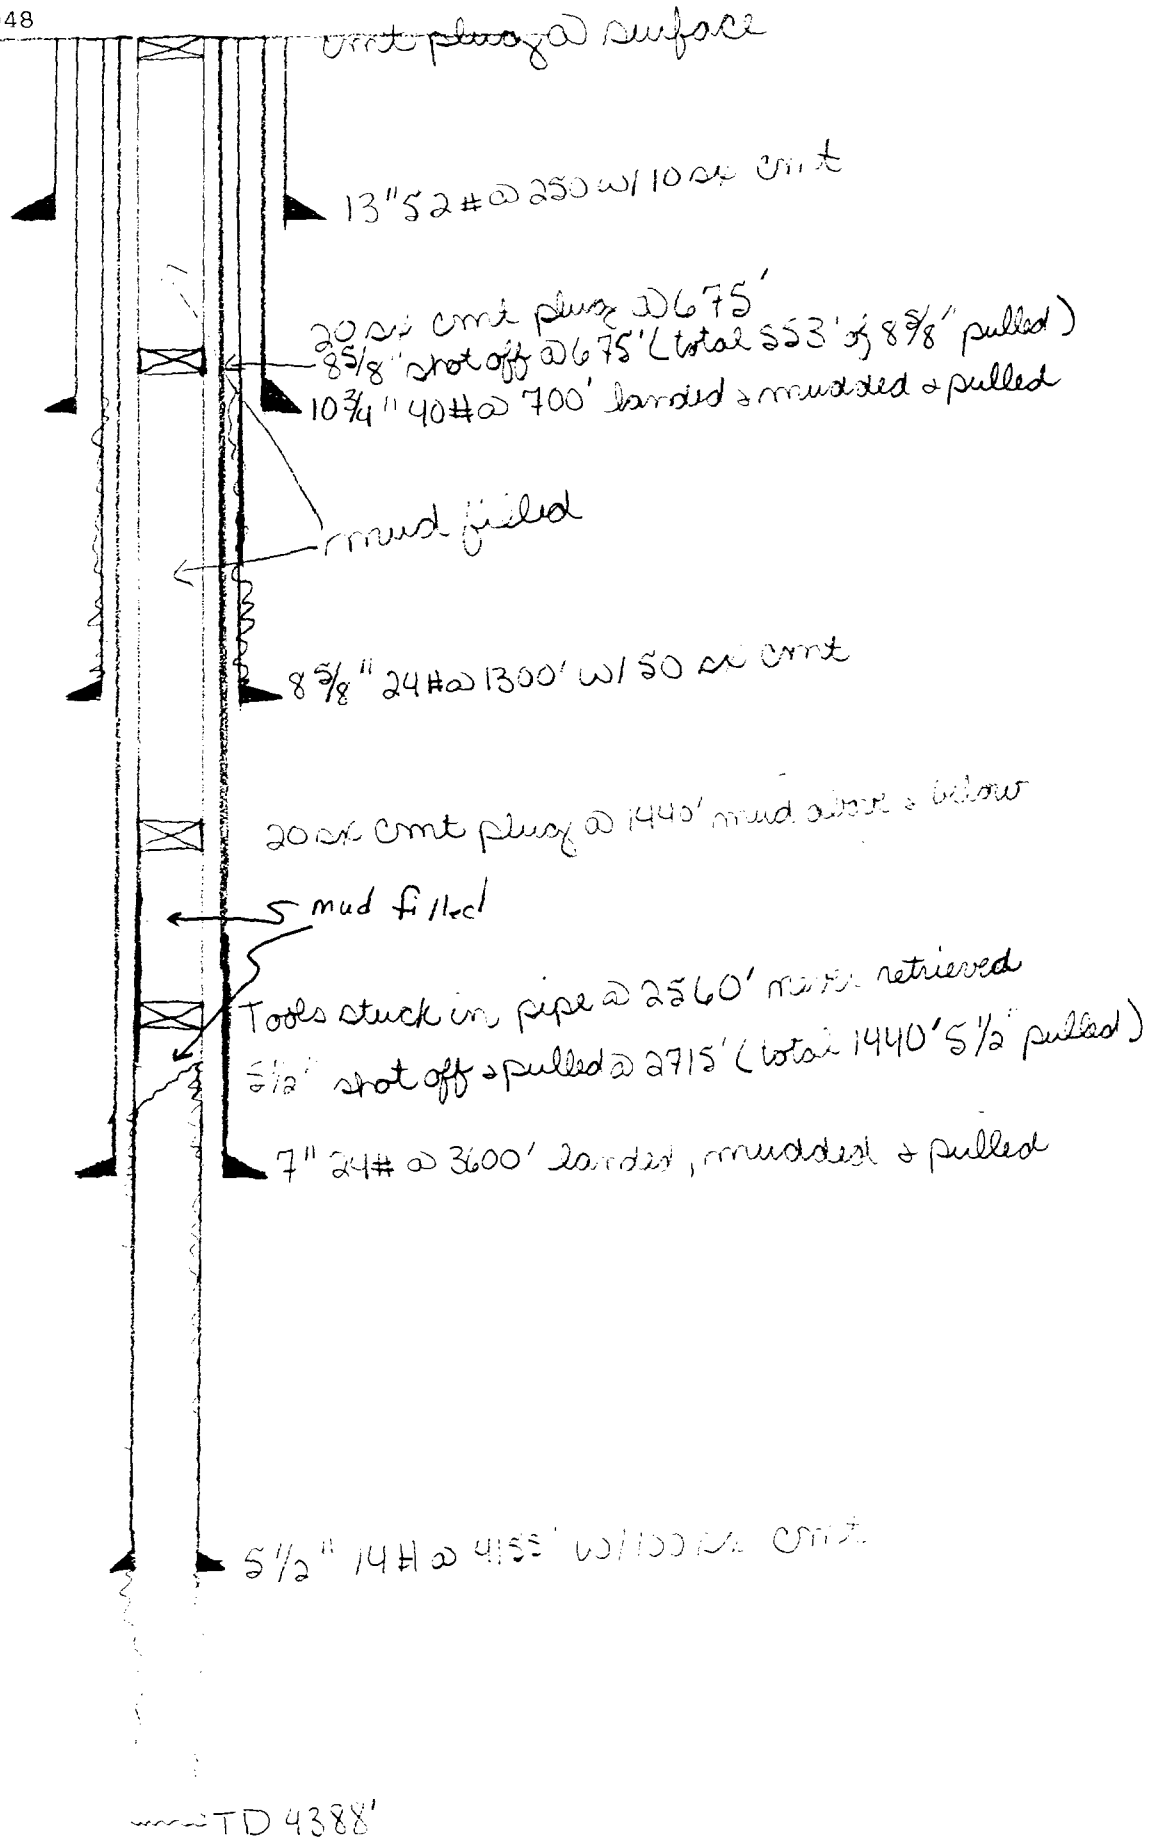 48
cmt plug @ surface
13" 52# @ 250 w/ 10 sx cmt
20 sx cmt plug @ 675'
8 5/8" shot off @ 675' (total 553' of 8 5/8" pulled)
10 3/4" 40# @ 700' landed & mudded & pulled
mud filled
8 5/8" 24# @ 1300' w/ 50 sx cmt
20 sx cmt plug @ 1440' mud above & below
mud filled
Tools stuck in pipe @ 2560' never retrieved
5 1/2" shot off & pulled @ 2715' (total 1440' 5 1/2" pulled)
7" 24# @ 3600' landed, mudded & pulled
5 1/2" 14# @ 4155' w/ 100 sx cmt
TD 4388'